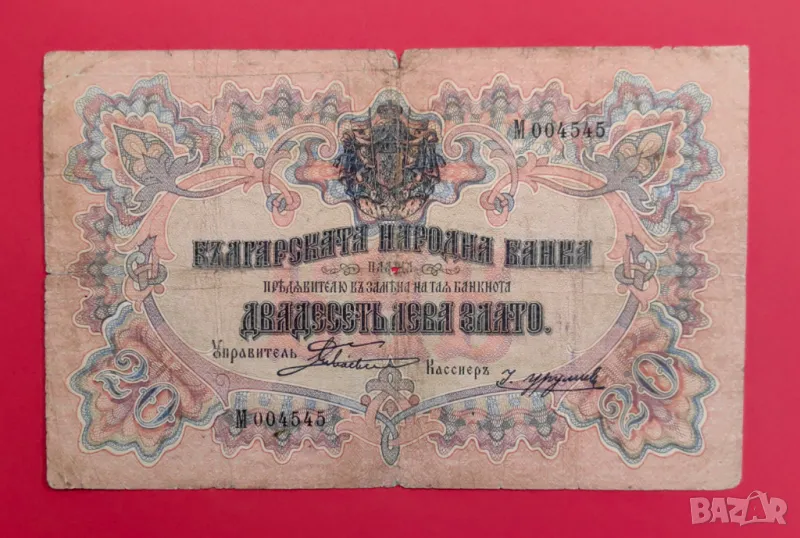 М 004545
БЪЛГАРСКАТА НАРОДНА БАНКА
ПЛАЩА
ПРѢДЯВИТЕЛЮ ВЪ ЗАМѢНА НА ТАЯ БАНКНОТА
ДВАДЕСЕТЬ ЛЕВА ЗЛАТО.
Управитель Кассиеръ
20 20
М 004545
BAZAR